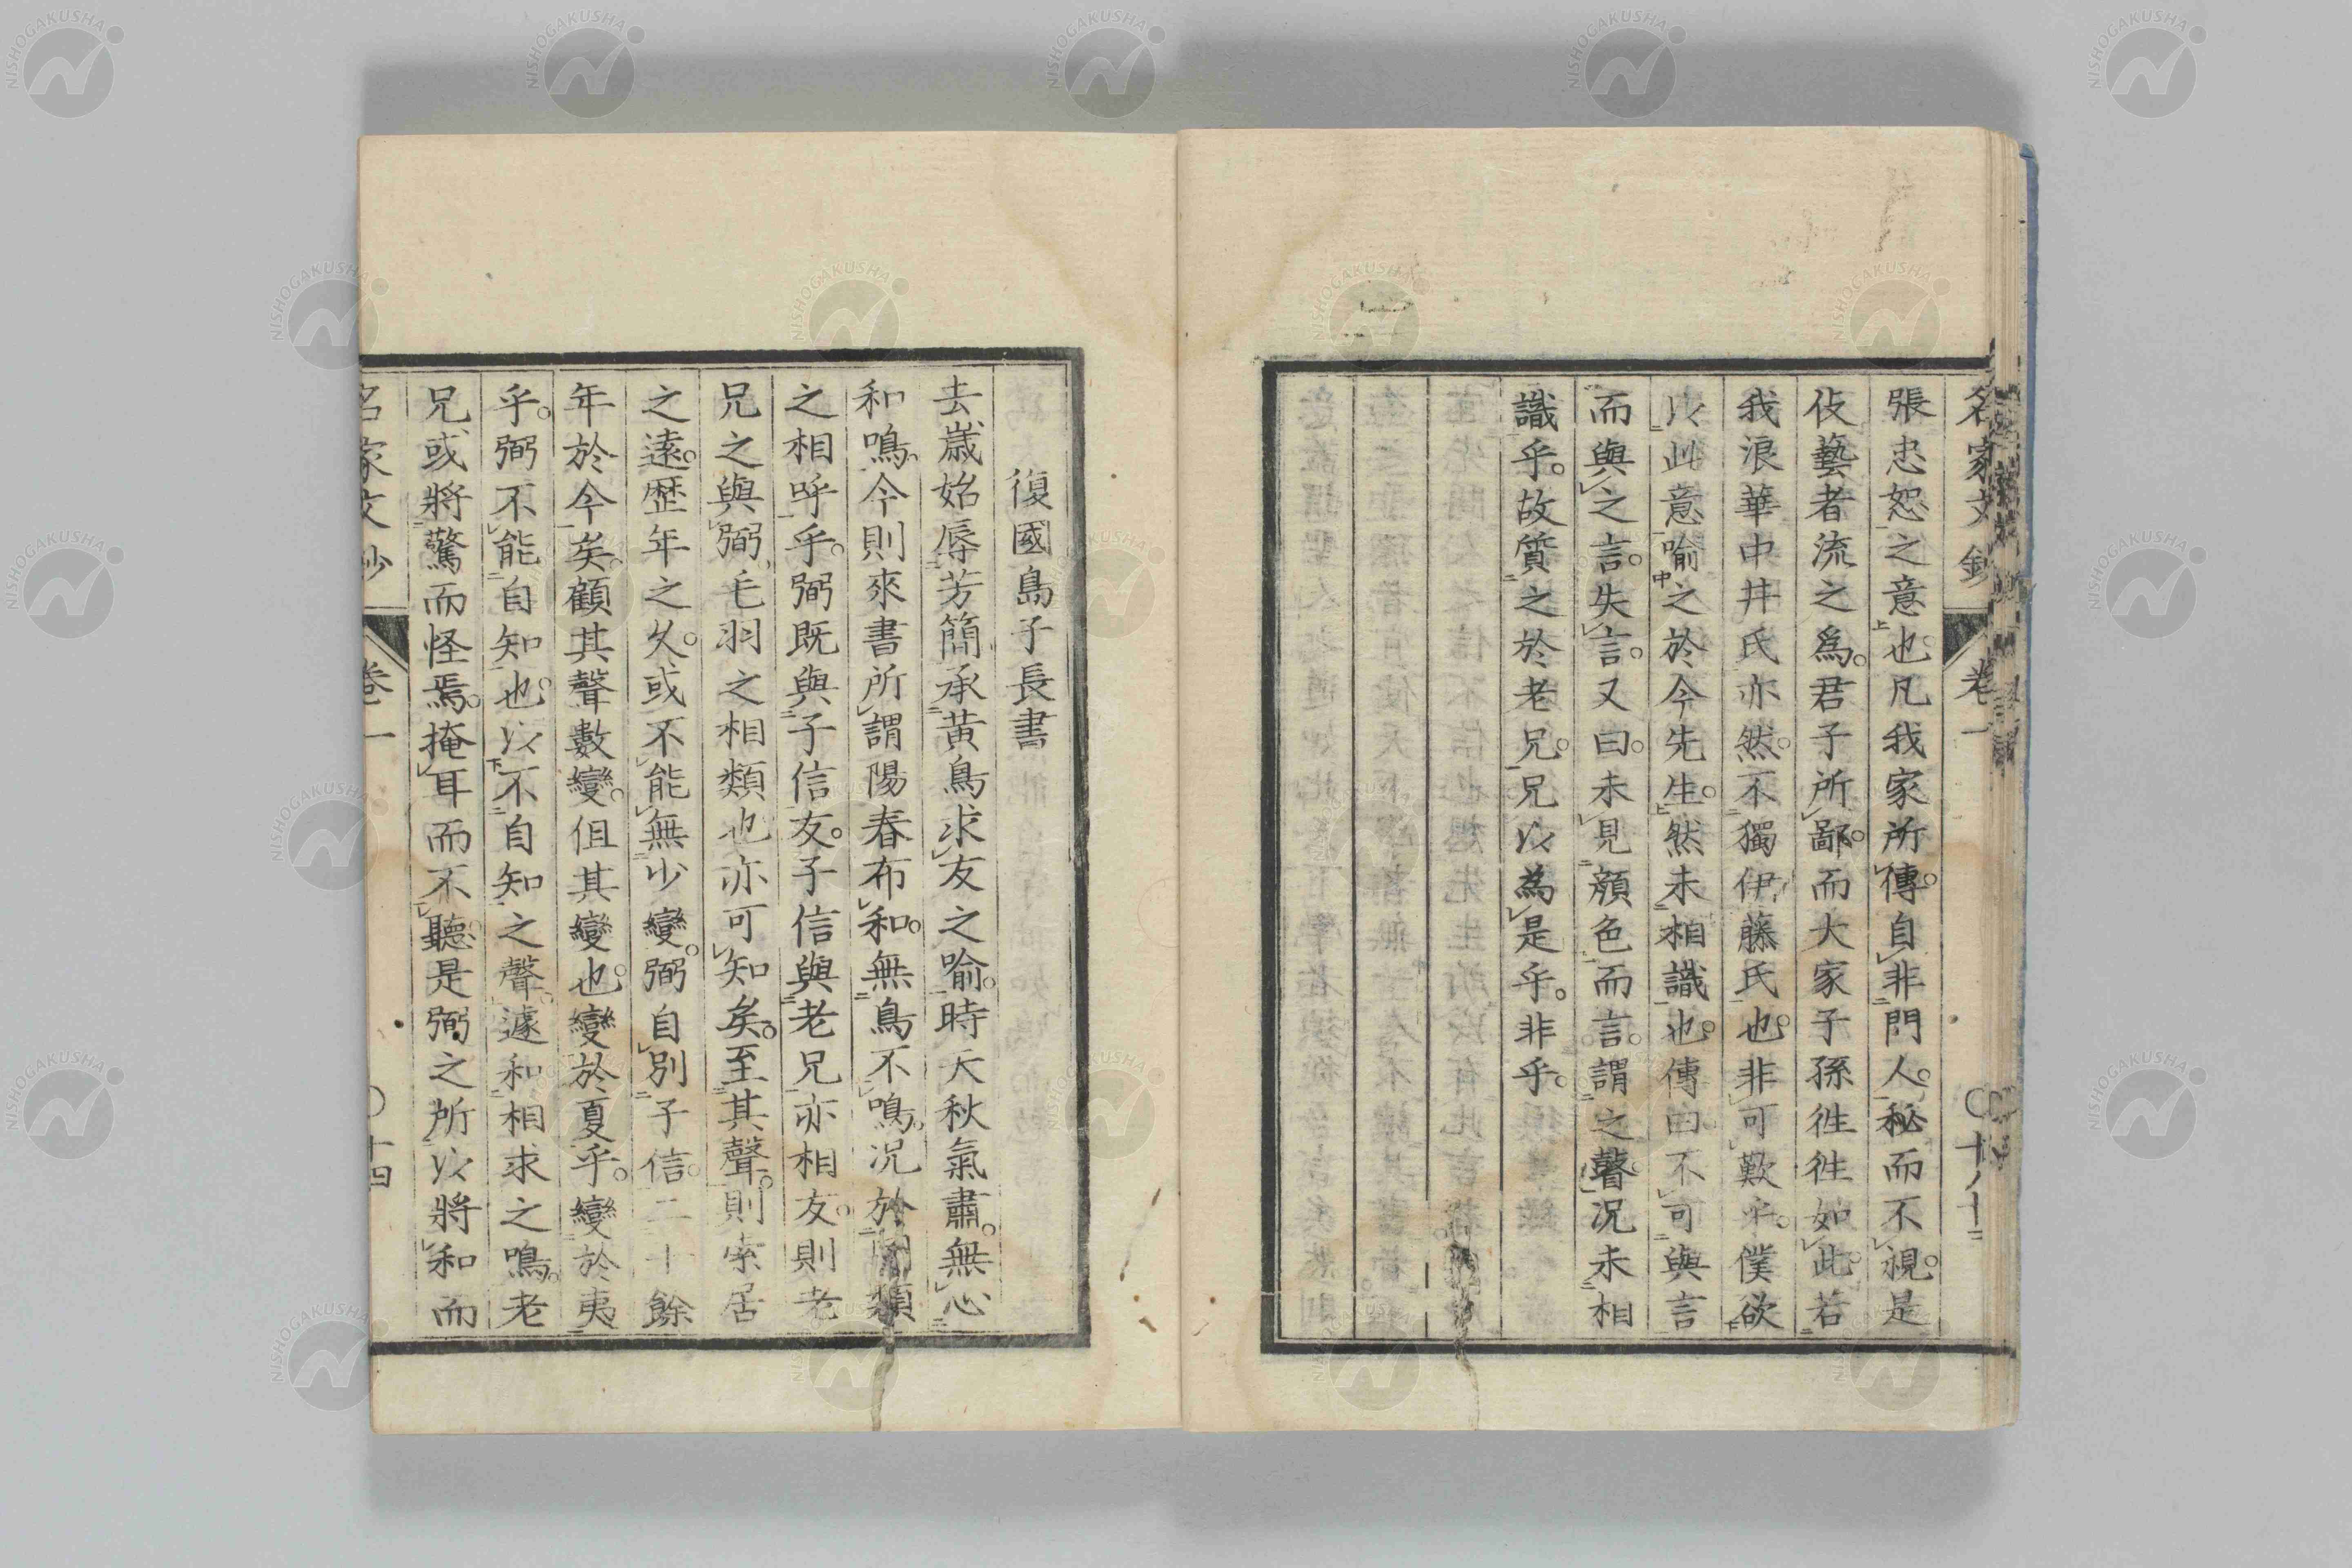 名家文鈔
卷一
張忠恕之意也。凡我家所傳。自非門人。秘而不視。是
伎藝者流之爲。君子所鄙。而大家子孫徃徃如此。若
我浪華中井氏亦然。不獨伊藤氏也。非可歎乎。僕欲
以此意喻之於今先生。然未相識也。傳曰不可與言
而與之言。失言。又曰。未見顏色而言。謂之瞽。況未相
識乎。故質之於老兄。兄以為是乎。非乎。
復國島子長書
去歲始辱芳簡承黃鳥求友之喻。時天秋氣肅。無心
和鳴。今則來書所謂陽春布和。無鳥不鳴。況於同類
之相呼乎。弼既與子信友。子信與老兄亦相友。則老
兄之與弼毛羽之相類也亦可知矣。至其聲。則索居
之遠。歷年之久。或不能無少變。弼自別子信。二十餘
年於今矣。顧其聲數變。但其變也。變於夏乎。變於夷
乎。弼不能自知也。以不自知之聲。遽和相求之鳴。老
兄或將驚而怪焉。掩耳而不聽。是弼之所以將和而
名家文鈔
卷一
十四
NISHOGAKUSHA